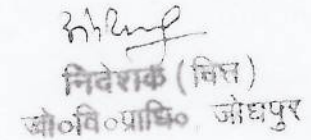 निदेशक (वित्त)
जो०वि०प्राधि० जोधपुर